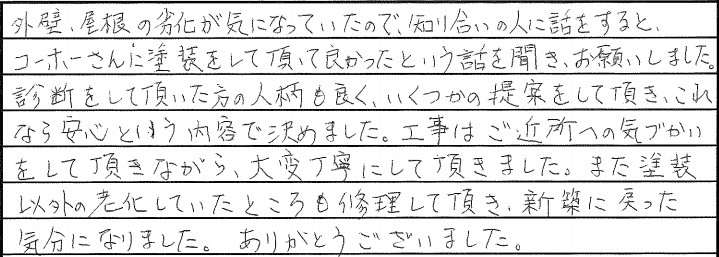 外壁、屋根の劣化が気になっていたので、知り合いの人に話をすると、
コーホーさんに塗装をして頂いて良かったという話を聞き、お願いしました。
診断をして頂いた方の人柄も良く、いくつかの提案をして頂き、これ
なら安心という内容で決めました。工事はご近所への気づかい
をして頂きながら、大変丁寧にして頂きました。また塗装
以外の老化していたところも修理して頂き、新築に戻った
気分になりました。ありがとうございました。